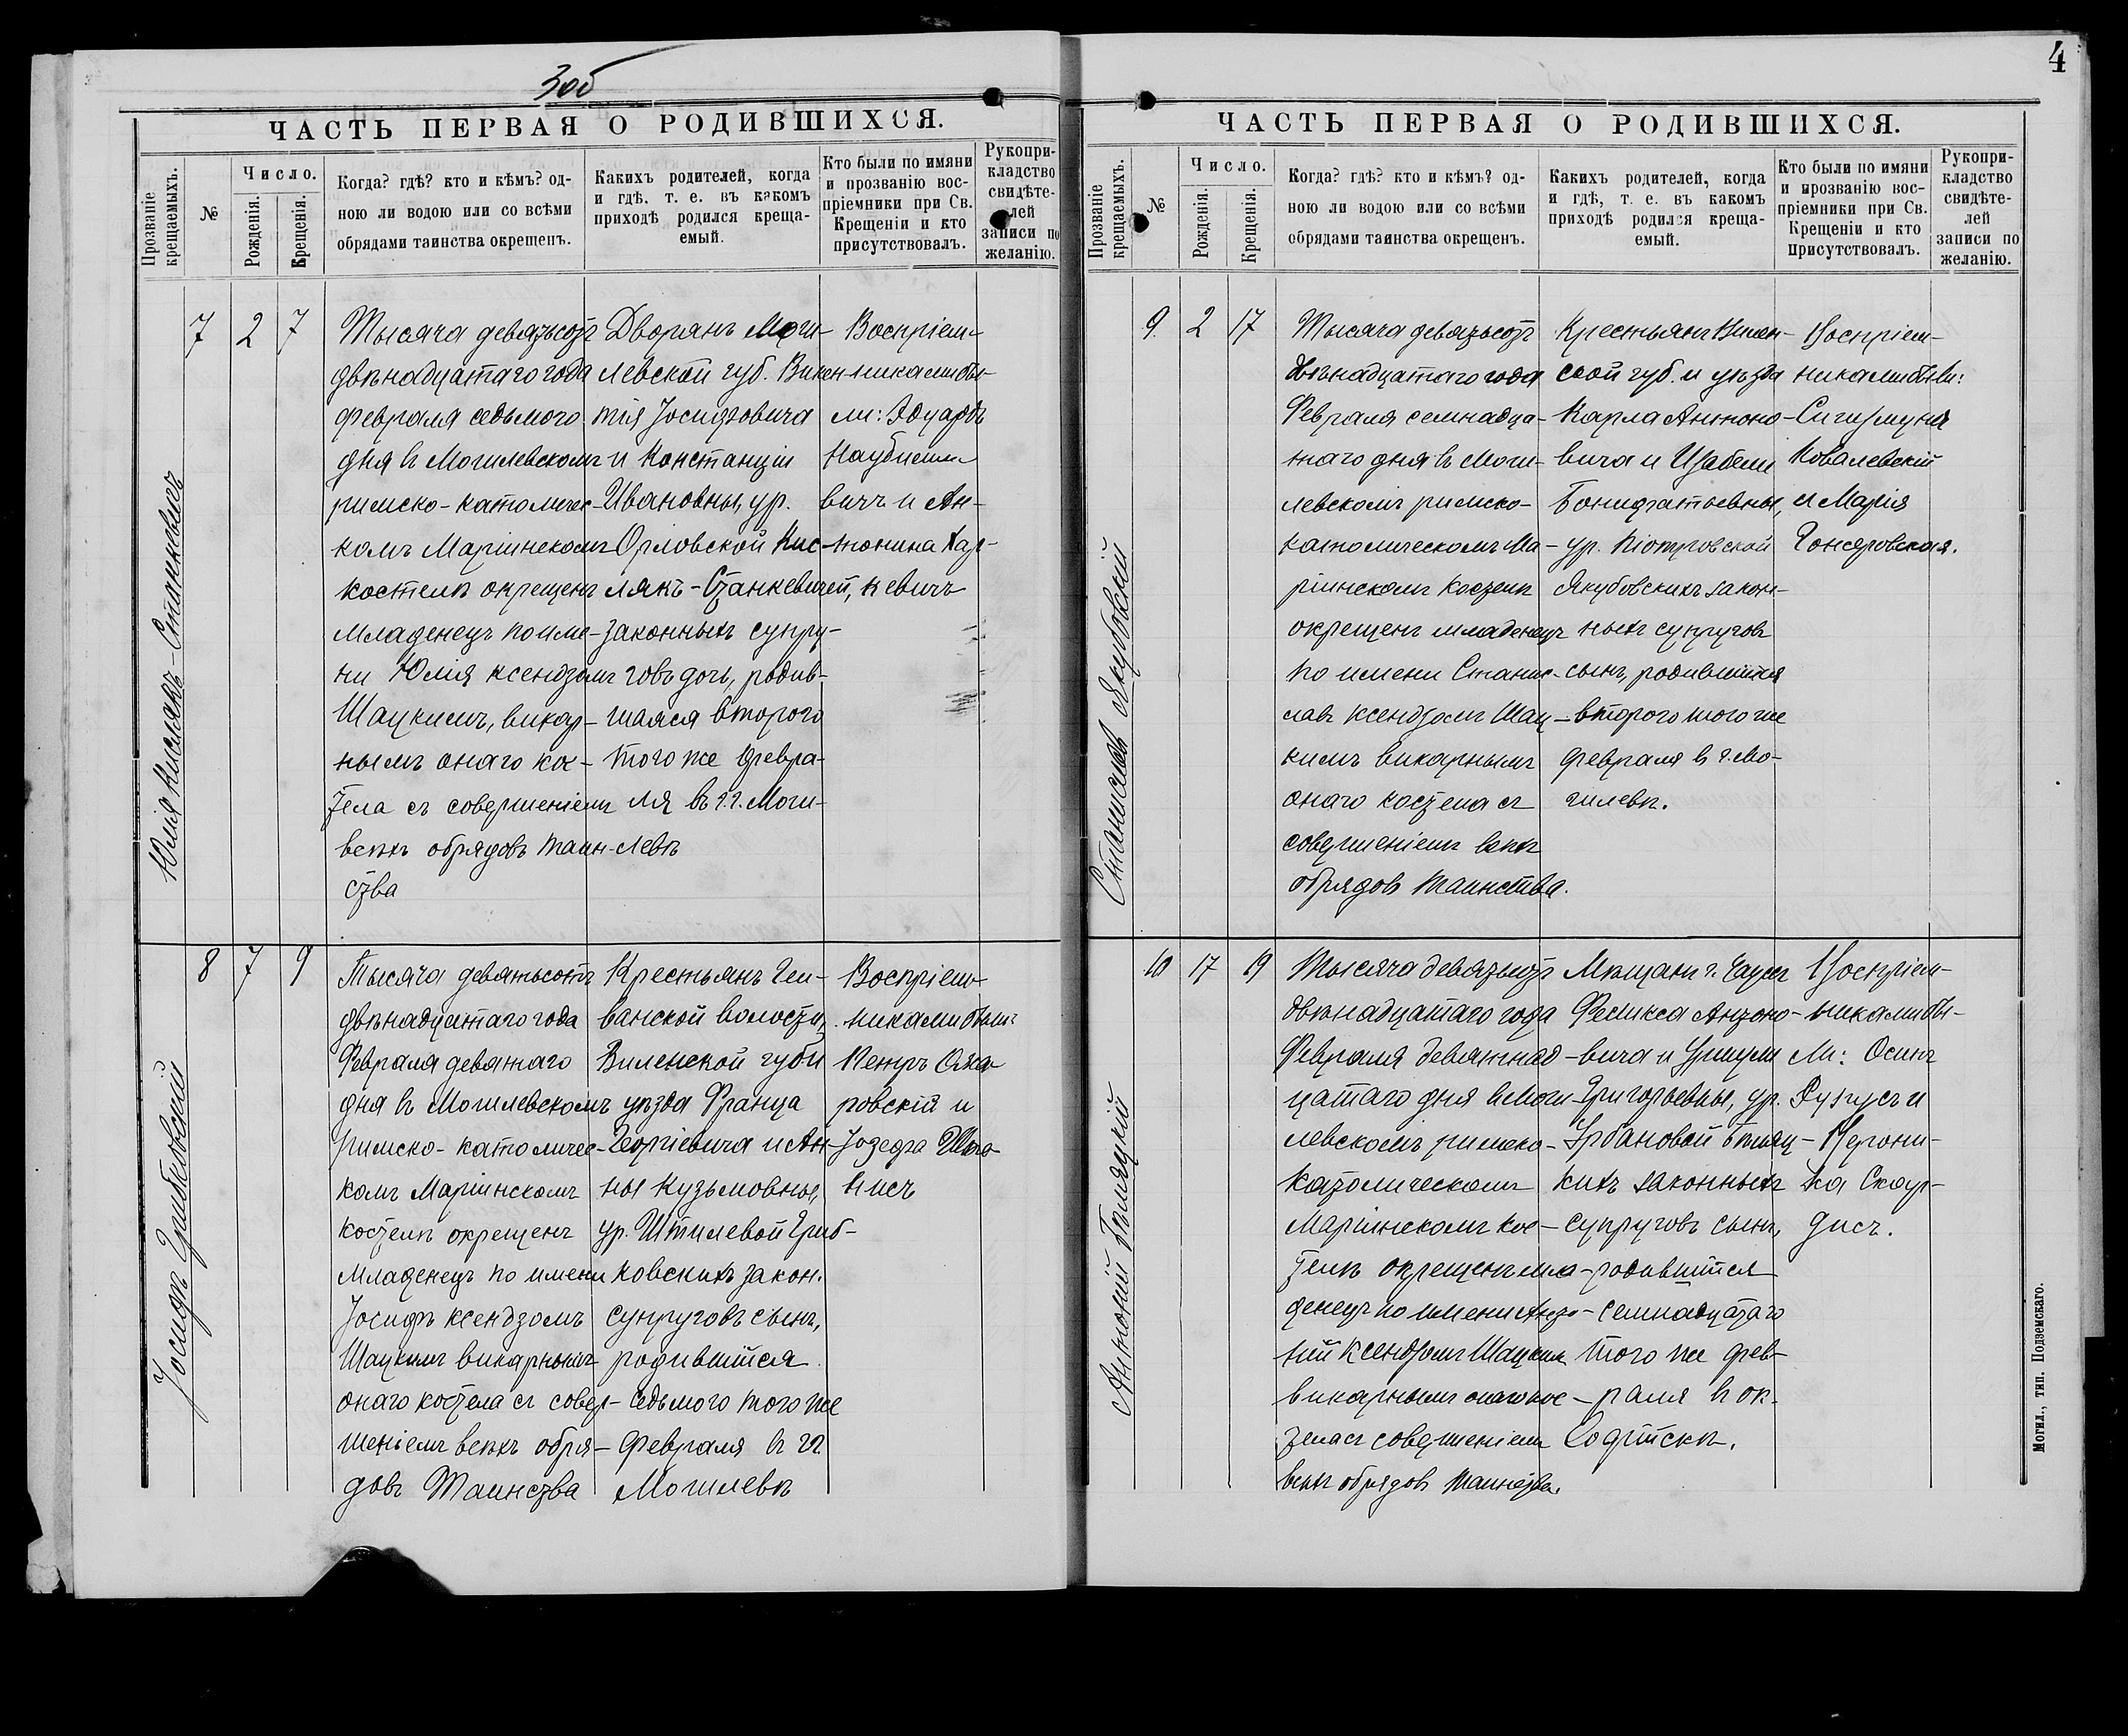 3об
ЧАСТЬ ПЕРВАЯ О РОДИВШИХСЯ.
Прозваніе крещаемыхъ.
№
Число.
Рожденія.
Крещенія.
Когда? гдѣ? кто и кѣмъ? од-
ною ли водою или со всѣми
обрядами таинства окрещенъ.
Какихъ родителей, когда
и гдѣ, т. е. въ какомъ
приходѣ родился креща-
емый.
Кто были по имяни
и прозванію вос-
пріемники при Св.
Крещеніи и кто
присутствовалъ.
Рукопри-
кладство
свидѣте-
лей
записи по
желанію.
Юлія Кислякъ-Станкевичъ
7
2
7
Тысяча девятьсотъ
двѣнадцатаго года
февраля седьмого
дня въ Могилевскомъ
римско-католичес-
комъ Маріинскомъ
костелѣ окрещенъ
младенецъ по име-
ни Юлія ксендзомъ
Шацкимъ, викар-
нымъ онаго кос-
тела съ совершеніемъ
всѣхъ обрядовъ таин-
ства
Дворянъ Моги-
левской губ. Викен-
тія Іосифовича
и Констанціи
Ивановны, ур.
Орловской Кис-
лякъ-Станкевичей,
законныхъ супру-
говъ дочь, родив-
шаяся второго
того же февра-
ля въ г. Моги-
левѣ
Воспріем-
никами бы-
ли: Эдуардъ
вичъ и Ан-
тонина Хар-
кевичъ
Іосифъ Грибковскій
8
7
9
Тысяча девятьсотъ
двѣнадцатаго года
Февраля девятаго
дня въ Могилевскомъ
римско-католичес-
комъ Маріинскомъ
костелѣ окрещенъ
младенецъ по имени
Іосифъ ксендзомъ
Шацкимъ викарнымъ
онаго костела съ совер-
шеніемъ всѣхъ обря-
довъ Таинства
Крестьянъ Гел-
ванской волости,
Виленской губ и
уѣзда Франца
Георгіевича и Ан-
ны Кузьмовны,
ур. Штилевой Гриб-
ковскихъ закон.
супруговъ сынъ,
родившійся
седьмого того же
Февраля въ гг.
Могилевѣ
Воспріем-
никами были:
Петръ
ровскій и
Іозефа
Станиславъ Якубовскій
4
ЧАСТЬ ПЕРВАЯ О РОДИВШИХСЯ.
Прозваніе крещаемыхъ.
№
Число.
Рожденія.
Крещенія.
Когда? гдѣ? кто и кѣмъ? од-
ною ли водою или со всѣми
обрядами таинства окрещенъ.
Какихъ родителей, когда
и гдѣ, т. е. въ каком
приходѣ родился креща-
емый.
Кто были по имяни
и прозванію вос-
пріемники при Св.
Крещеніи и кто
присутствовалъ.
Рукопри-
кладство
свидѣте-
лей
записи по
желанію.
9.
2
17
Тысяча девятьсотъ
двѣнадцатаго года
Февраля семнадца-
таго дня въ Моги-
левскомъ римско-
католическомъ Ма-
ріинскомъ костелѣ
окрещенъ младенецъ
по имени Станис-
лавъ ксендзомъ Шац-
кимъ викарнымъ
онаго костела съ
совершеніемъ всѣхъ
обрядовъ таинства.
Крестьянъ Вилен-
ской губ. и уѣзда
Карла Антоно-
вича и Изабели
Бонифатьевны,
ур. Піотровской
Якубовскихъ закон-
ныхъ супруговъ
сынъ, родившійся
второго того же
февраля въ г. Мо-
гилевѣ.
Воспріем-
никами были:
Сигизмундъ
Ковалевскій
и Марія
Гонсяровская.
Антоній Бѣляцкій
10
17
19
Тысяча девятьсотъ
двѣнадцатаго года
Февраля девятнад-
цатаго дня въ Моги-
левскомъ римско-
католическомъ
Маріинскомъ кос-
телѣ окрещенъ мла-
денецъ по имени Анто-
ній ксендзомъ Шацкимъ
викарнымъ онаго кос-
тела съ совершеніемъ
всѣхъ обрядовъ таинства.
Мѣщанъ г. Чаусъ
Феликса Антоно-
вича и Уршули
Григорьевны, ур.
Урбановой Бѣляц-
кихъ законныхъ
супруговъ сынъ,
родившійся
семнадцатаго
того же фев-
раля въ ок.
Софійскѣ.
Воспріем-
никами бы-
ли: Осипъ
и
Верони-
ка Скау-
дисъ.
Могил., тип. Подземскаго.